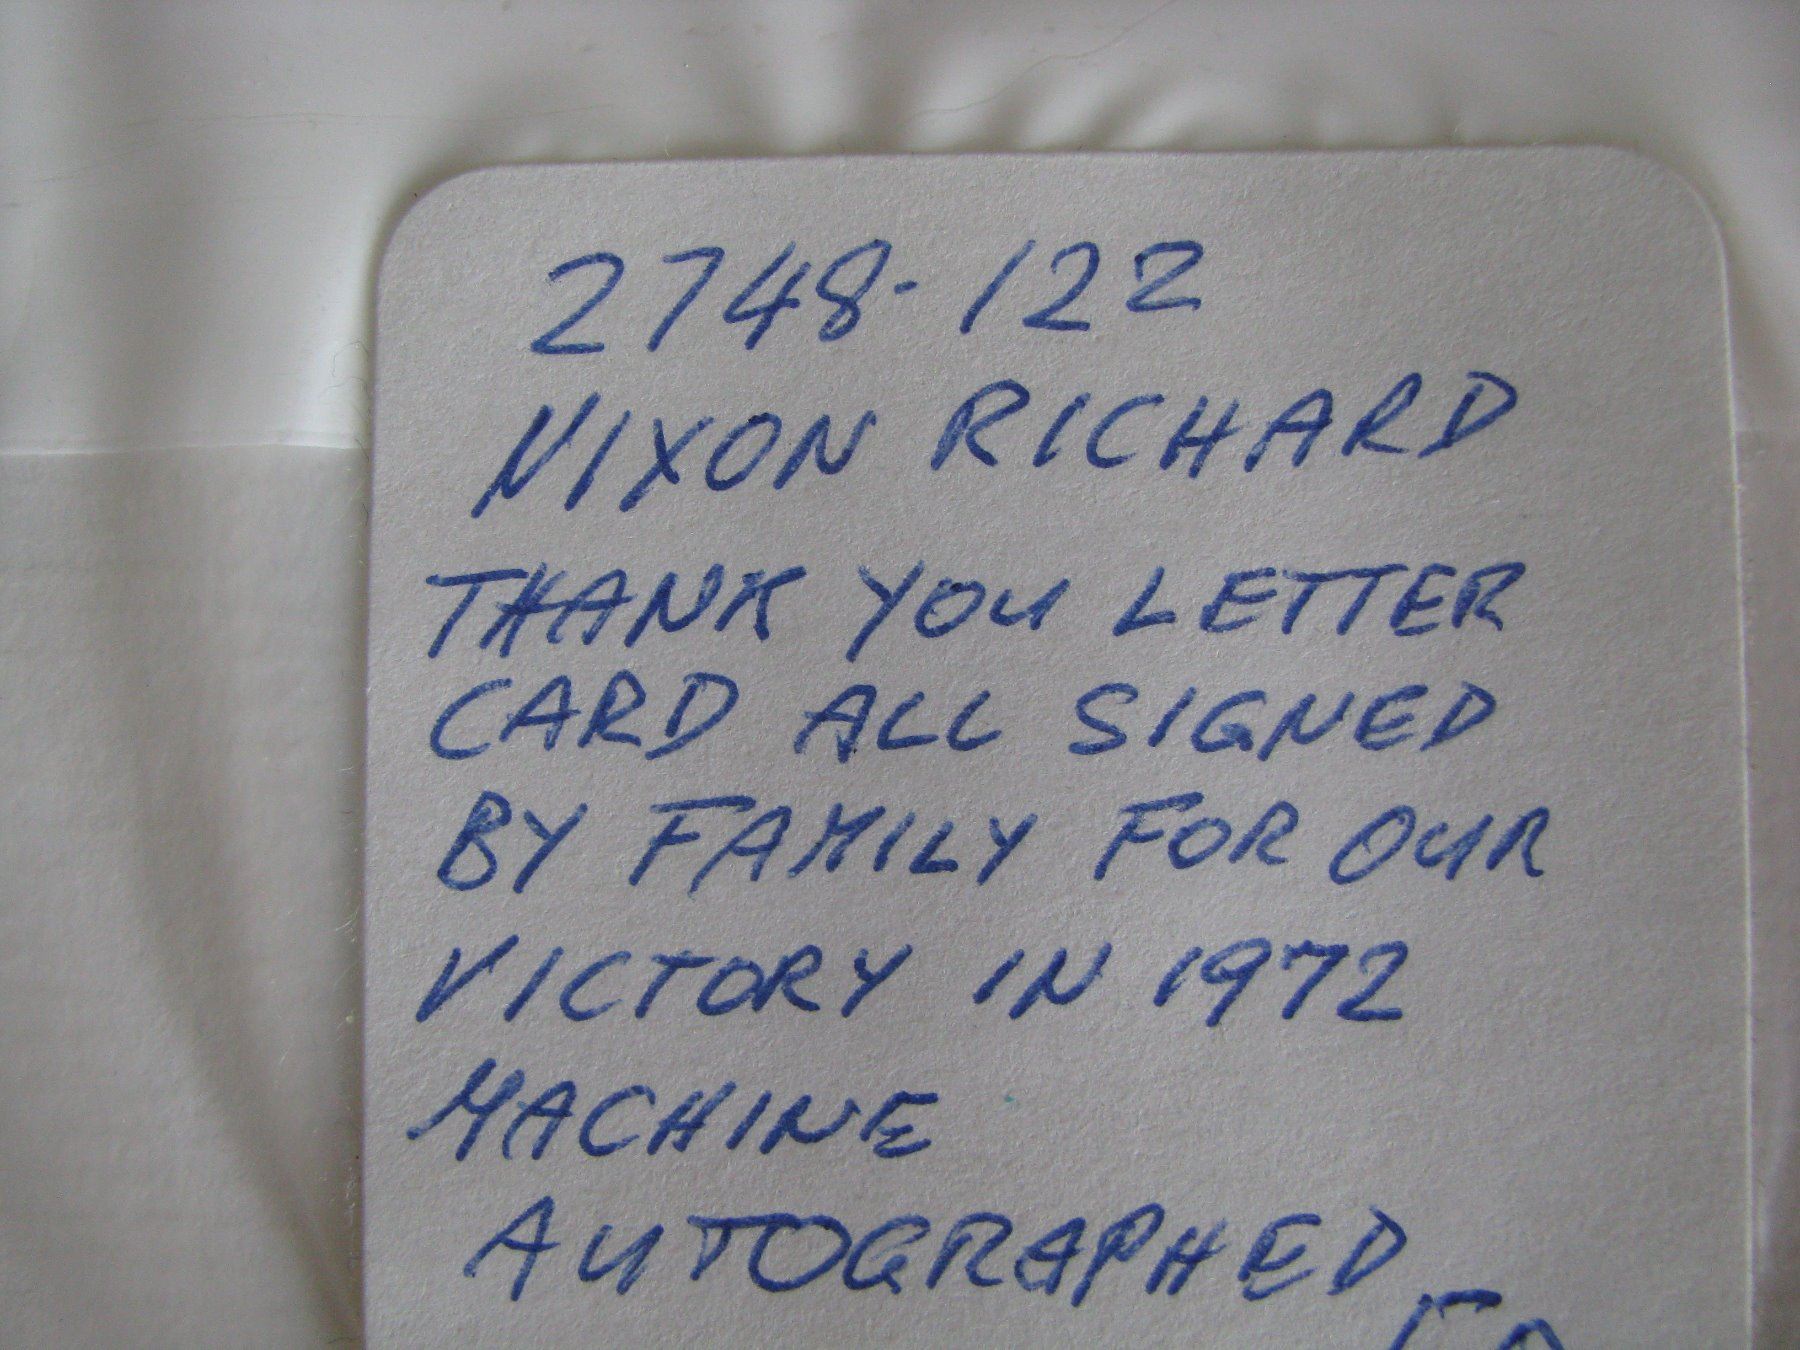 2748-122
NIXON RICHARD
THANK YOU LETTER
CARD ALL SIGNED
BY FAMILY FOR OUR
VICTORY IN 1972
MACHINE
AUTOGRAPHED